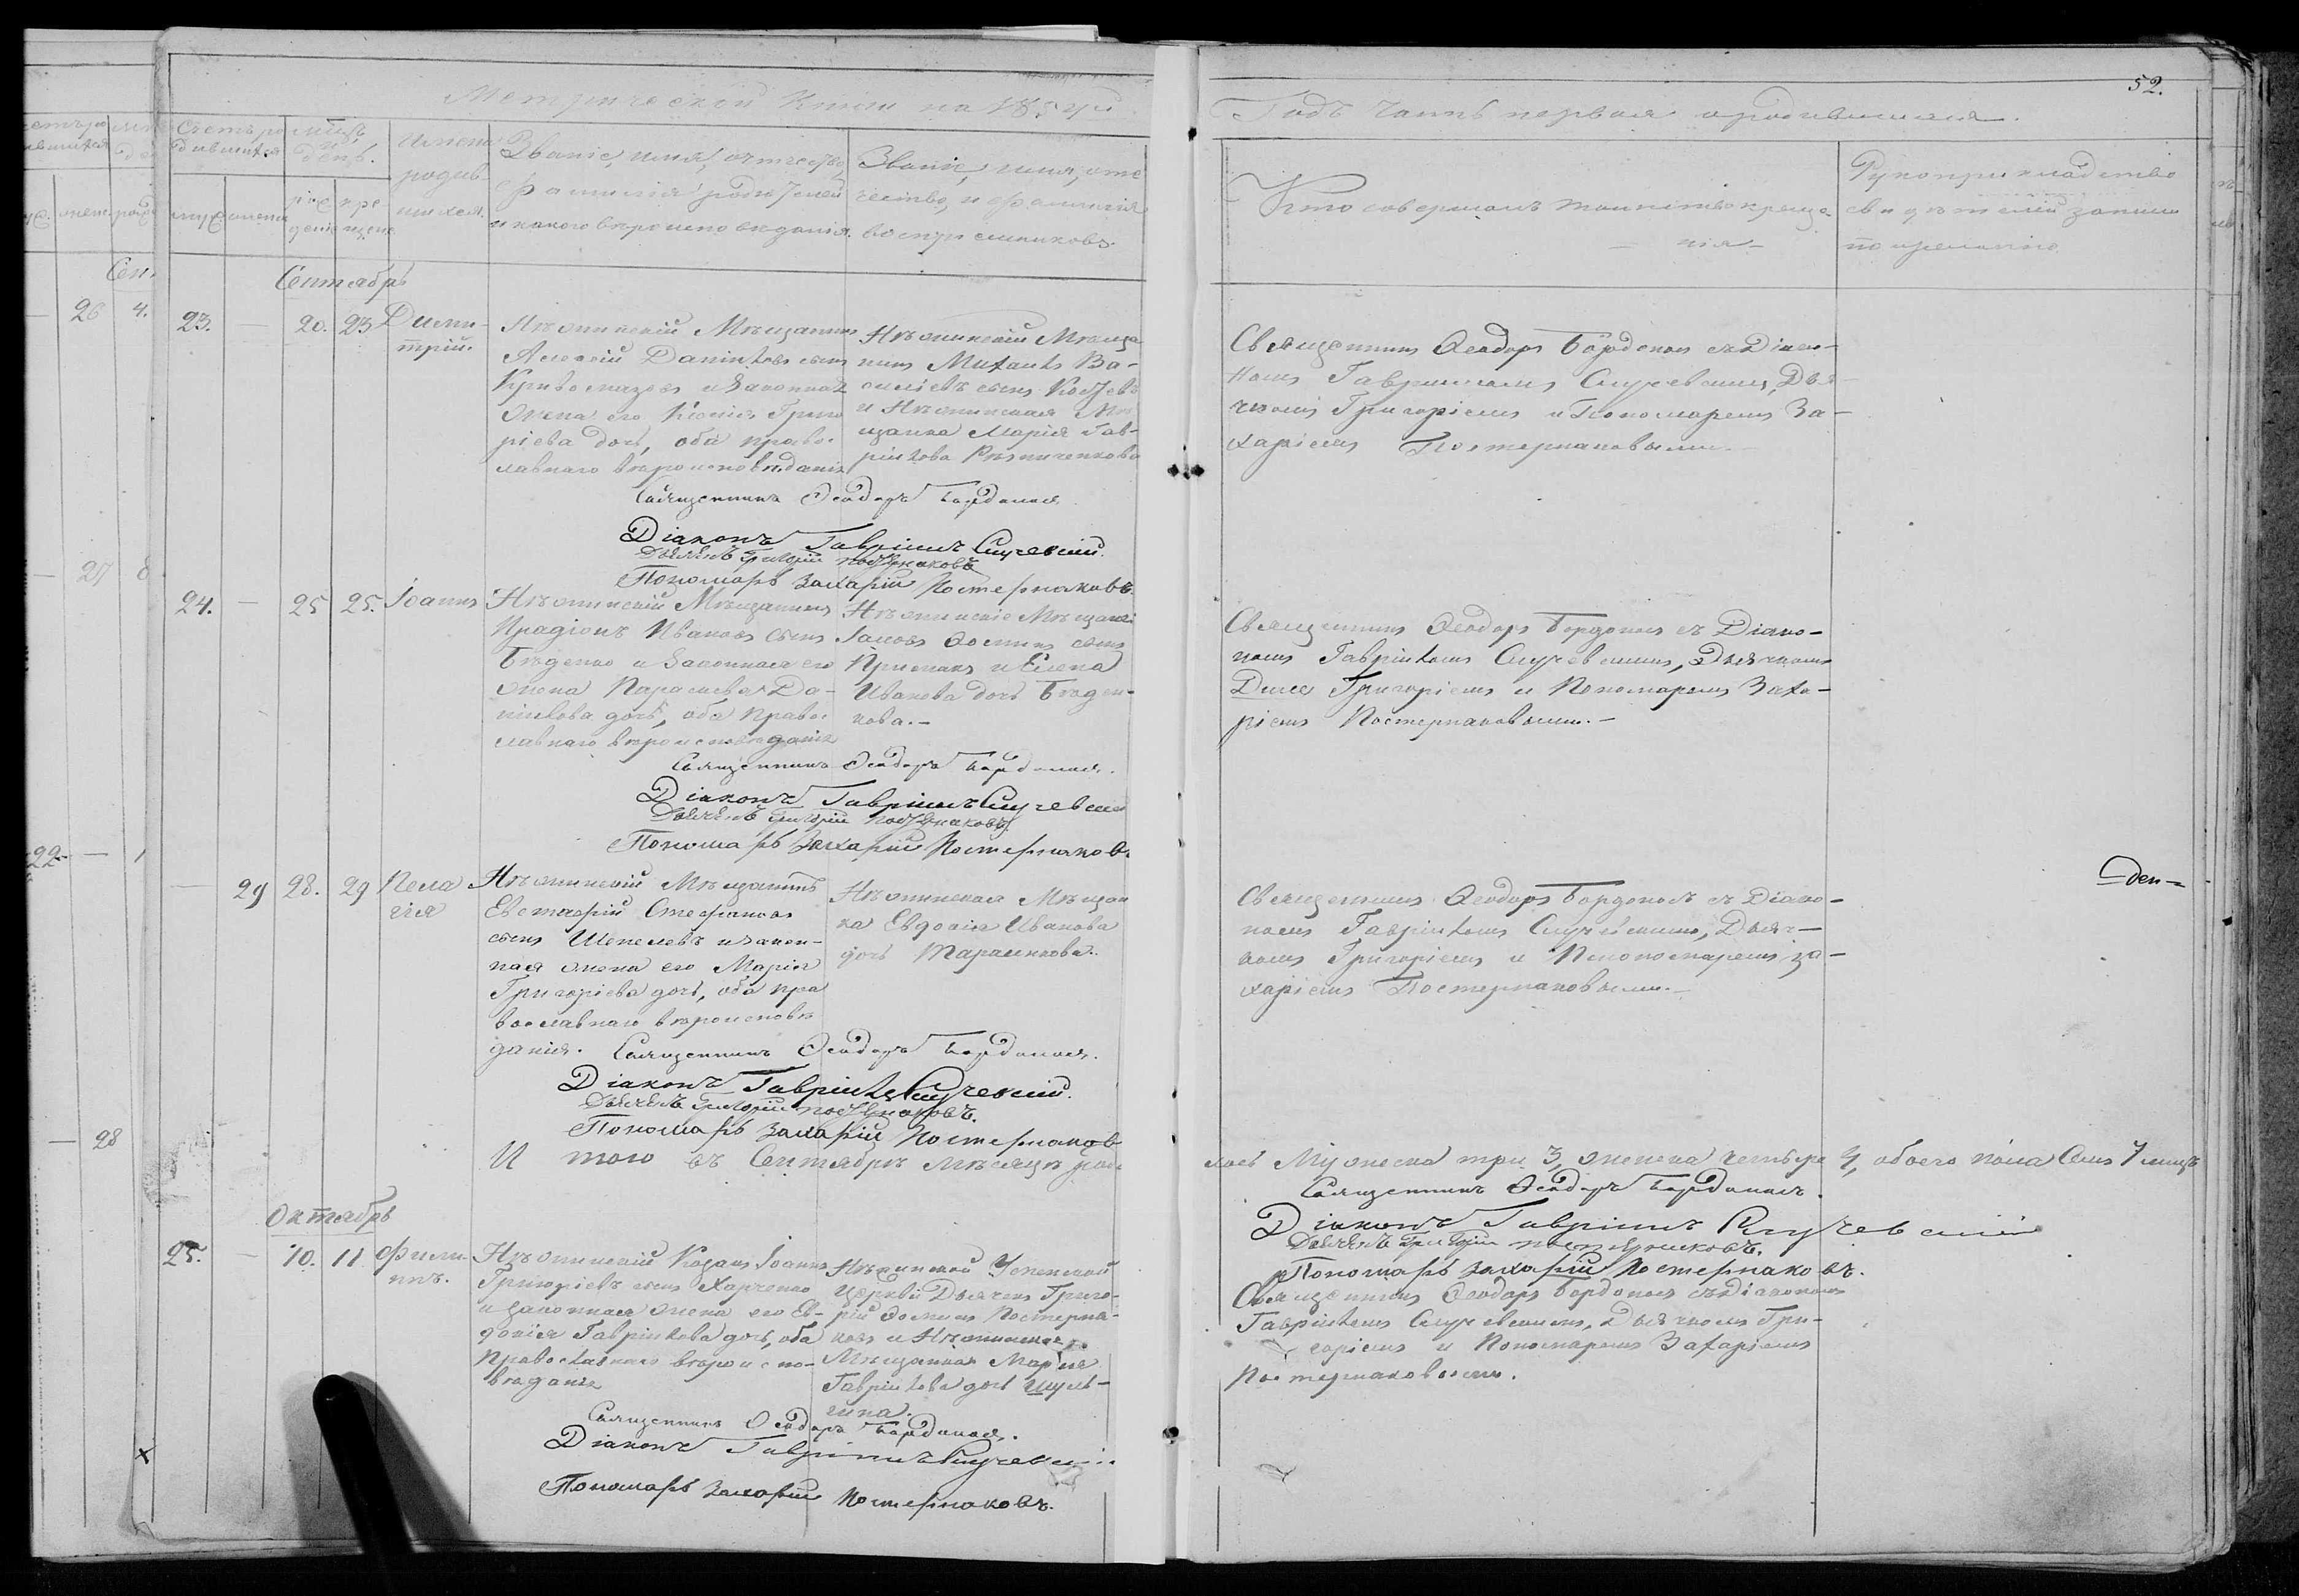 52.
Метрической книги на 1854й
Годъ часть первая о родившихся.
Счетъ ро
дившихся
мсцъ
и
день.
Имена
родив
шихся.
Званіе, имя, отчество,
фамилія родителей
и какого вѣроисповѣданія.
Званіе, имя, оте
чество, и фамилія
воспріемниковъ.
муж
женск
рож
денія
кре
щенія
Кто совершалъ таинство креще
нія
Рукоприкладство
свидѣтелей записи
по желанію
Сентябрь
23. — 20. 23 Дими-
трій.
Нѣжинскій Мѣщанинъ
Алексій Даніиловъ сынъ
и Законная
жена его Ксенія Григо
ріева дочь, оба право-
славнаго вѣроисповѣданія
Нѣжинскій Мѣща
нинъ Михаилъ Ва-
силіевъ сынъ
и Нѣжинская Мѣ
щанка Марія Гав-
ріилова Рѣзниченкова
Священникъ Ѳеодоръ Бордоносъ съ Діако-
номъ Гавріиломъ Случевскимъ, Дья-
чкомъ Григоріемъ и Пономаремъ За-
харіемъ Постернаковыми.
Священникъ Ѳеодоръ Бордоносъ
Діаконъ Гавріилъ Случевскій.
Дьячекъ Григорій Постернаковъ
Пономарь Захарій Постернаковъ.
24. — 25 25. Іоаннъ
Нѣжинскій Мѣщанинъ
Иродіонъ Ивановъ сынъ
Бѣденко и Законная его
жена Параскева Да-
ніилова дочь, оба право-
славнаго вѣроисповѣданія
Нѣжинскіе Мѣщане
Іаковъ Ѳоминъ сынъ
Примакъ и Елена
Иванова дочь Бѣден-
кова.-
Священникъ Ѳеодоръ Бордоносъ съ Діако-
номъ Гавріиломъ Случевскимъ, Дьячкомъ
Григоріемъ и Пономаремъ Заха-
ріемъ Постернаковыми.-
Священникъ Ѳеодоръ Бордоносъ.
Діаконъ Гавріилъ Случевскій
Дьячекъ Григорій Постернаковъ
Пономарь Захарій Постернаковъ.
— 29 28. 29 Пела
гія
Нѣжинскій Мѣщанинъ
Евстафій Стефановъ
сынъ Шепелевъ и закон-
ная жена его Марія
Григоріева дочь, оба пра
вославнаго вѣроисповѣ
данія.
Нѣжинская Мѣщан
ка Евдокія Иванова
дочь Тарасенкова.
Священникъ Ѳеодоръ Бордоносъ съ Діако-
номъ Гавріиломъ Случевскимъ, Дьяч-
комъ Григоріемъ и Пономаремъ За-
харіемъ Постернаковыми.-
Священникъ Ѳеодоръ Бордоносъ.
Діаконъ Гавріилъ Случевскій.
Дьячекъ Григорій Постернаковъ.
Пономарь Захарій Постернаковъ
И того въ Сентябрѣ мѣсяцѣ роди
лось Мужеска три 3, женска четыре 4, обоего пола семь 7 лицъ
Священникъ Ѳеодоръ Бордоносъ.
Діаконъ Гавріилъ Случевскій
Дьячекъ Григорій Постернаковъ.
Пономарь Захарій Постернаковъ.
Октябрь
25. — 10. 11 Фили-
ппъ.
Нѣжинскій Козакъ Іоаннъ
Григоріевъ сынъ Харченко
и законная жена его Ев-
докія Гавріилова дочь, оба
Православнаго вѣроиспо-
вѣданія
Нѣжинской Успенской
Церкви Дьячекъ Григо-
рій Ѳоминъ Постерна-
ковъ и Нѣжинская
Мѣщанка Марія
Гавріилова дочь Шуль-
гина.
Священникъ Ѳеодоръ Бордоносъ съ Діакономъ
Гавріиломъ Случевскимъ, Дьячкомъ Гри-
горіемъ и Пономаремъ Захаріемъ
Постернаковыми.
Священникъ Ѳеодоръ Бордоносъ.
Діаконъ Гавріилъ Случевскій.
Пономарь Захарій Постернаковъ.